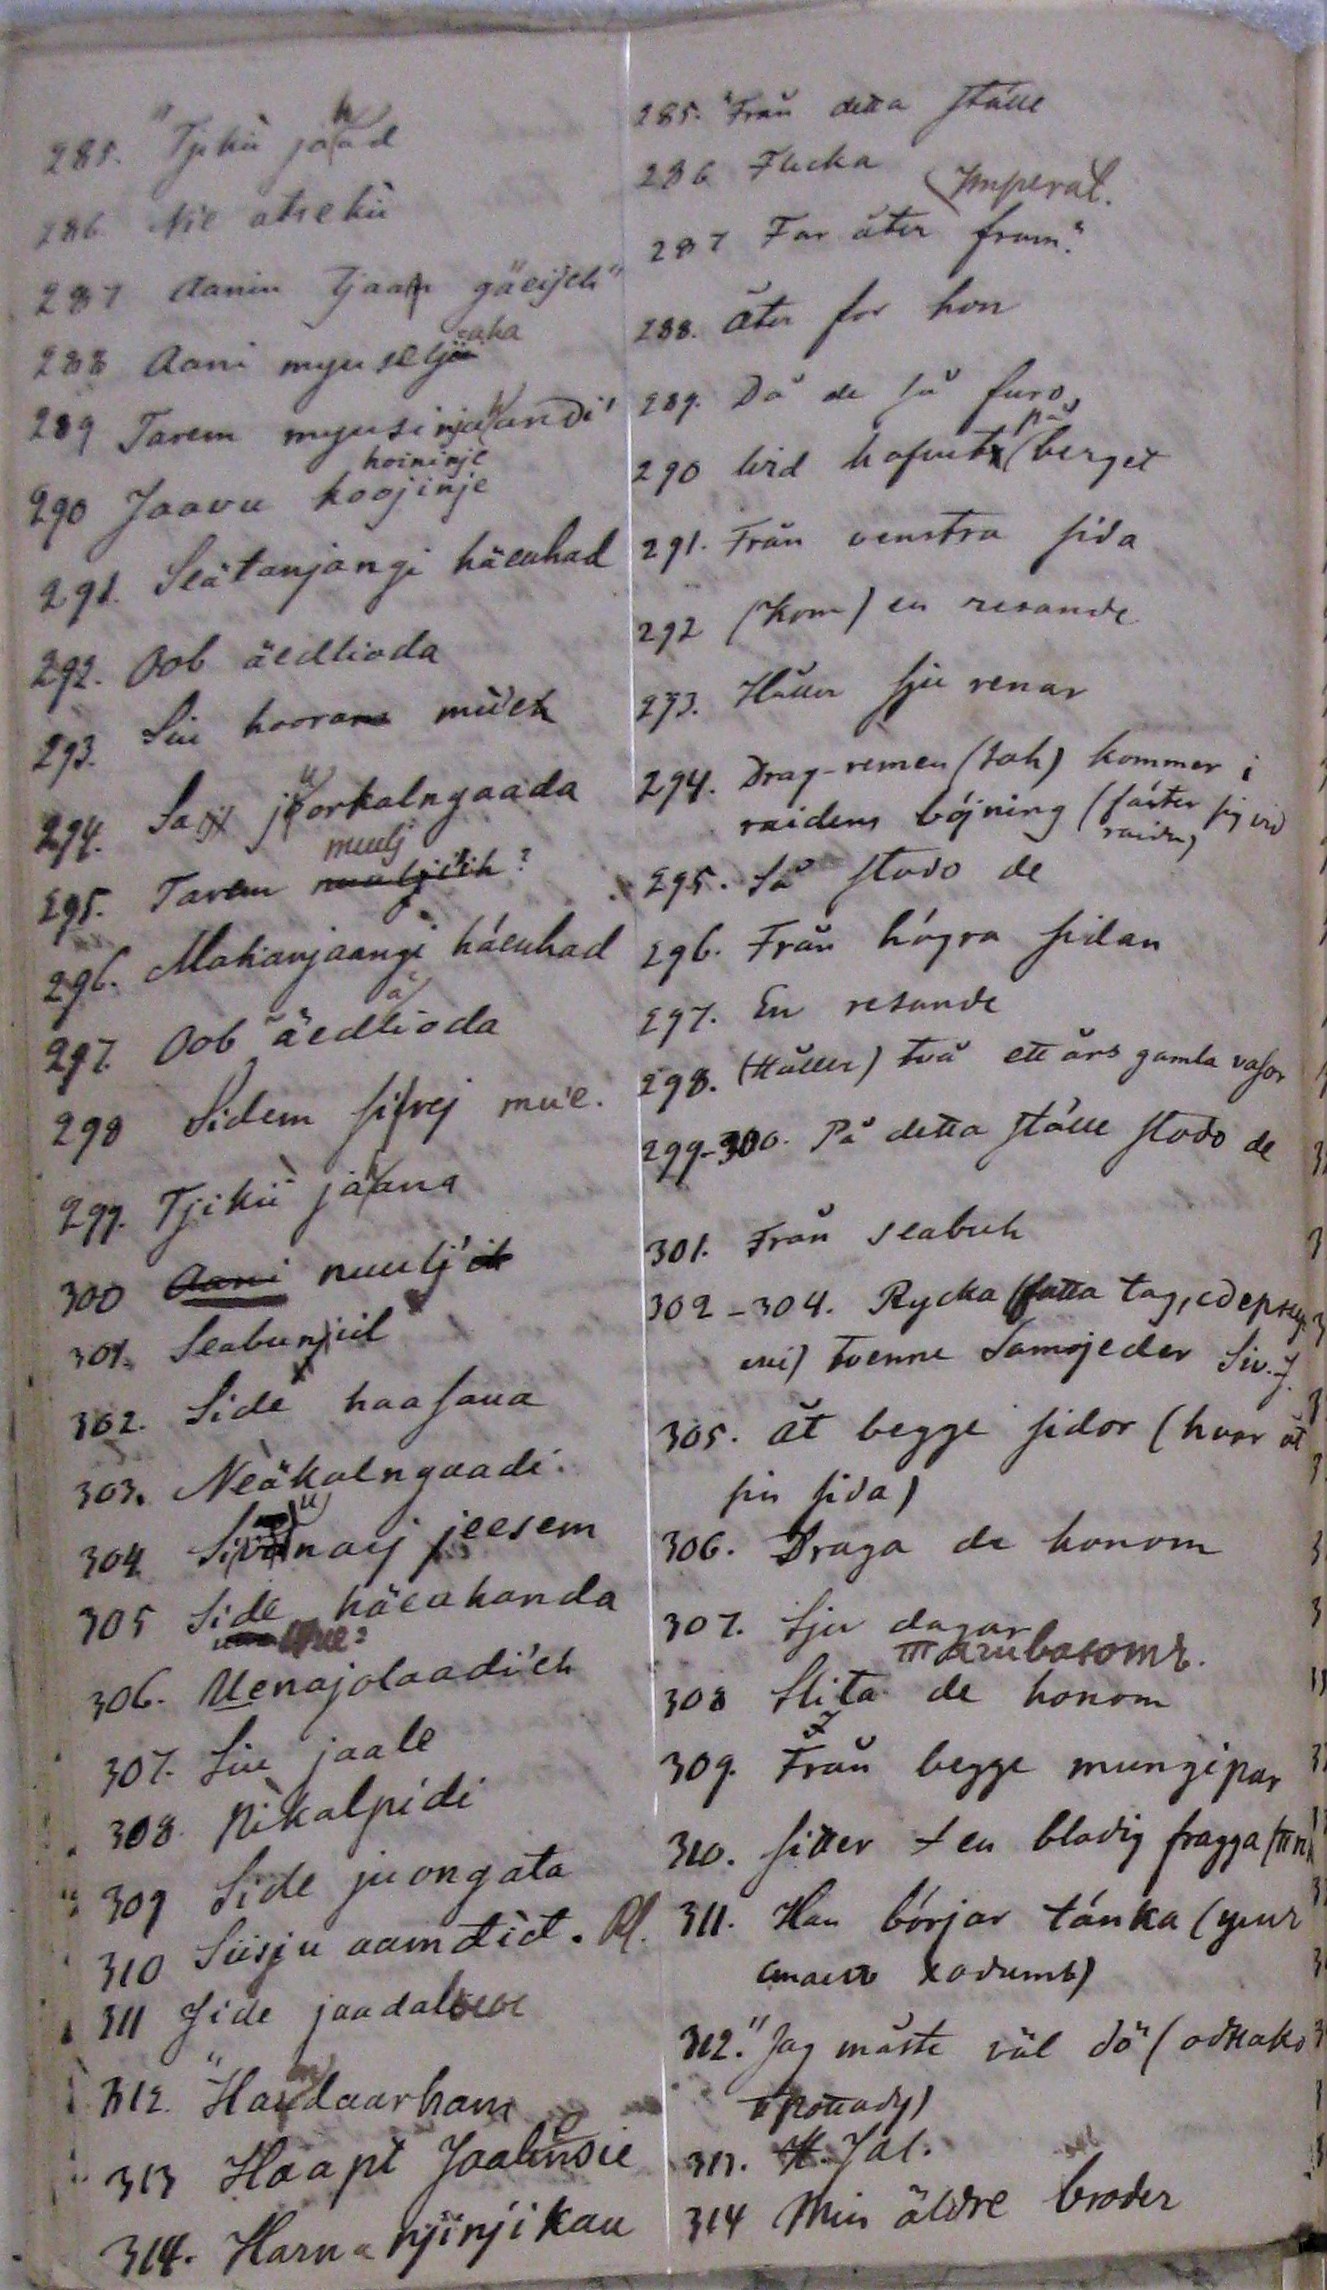 285. "Tjikü jaad
286. Nie atsekü
287 Aanin tjaan gäeijeh"
288 Aani myuselji
aha
289 Tarem myusinja andi'
hoininje
290 Jaavu koojinje
291. Seätanjangi häeuhad
292. Oob äedlioda
293. Siu hoora müeh
294. Sa jorkalngaada
muulj
295. Tarem
296. Mahanjaangi häeuhad
297. Oob äedlioda
298 Sidem sifvej mue.
299. Tjikü jaana
300 Aani nuulj
301. Seabunjiil
302. Side haasaua
303. Neäkalngaadi.
304. naej jeesem
305 Side häeuhanda
306. Uenajolaadi'eh
307. Siu jaale
308. Nikalpidi
309 Side juongata
310 Siisju aamdid. Pl.
311 Side jaadal
312. daarham
313 Haapt
314. Harna njinjikau
285. "Från detta ställe
286 Flicka
Imperat.
287 Far åter fram."
288. Åter for hon
289. Då de så furo,
290 vid hafvet på berget
291. Från venstra sida
292 (Kom) en resande
293. Håller sju renar
294. Drag-remen (sah) kommer i
raidens böjning (fäster sig vid
raiden)
295. Så stodo de
296. Från högra sidan
297. En resande
298. (Håller) två ett års gamla vasor
299-300. På detta ställe stodo de
301. Från seabuh
302-304. Rycka (fatta tag,
tvenne Samojeder Siv. J.
305. Åt begge sidor (hvar åt
sin sida)
306. Draga de honom
307. Sju dagar
308 Slita de honom
309. Från begge mungipar
310. sitter en blodig fragga
311. Han börjar tänka (
ходить)
312. "Jag måste väl dö (однако
пропаду)
313. H. Jal.
314 Min äldre broder